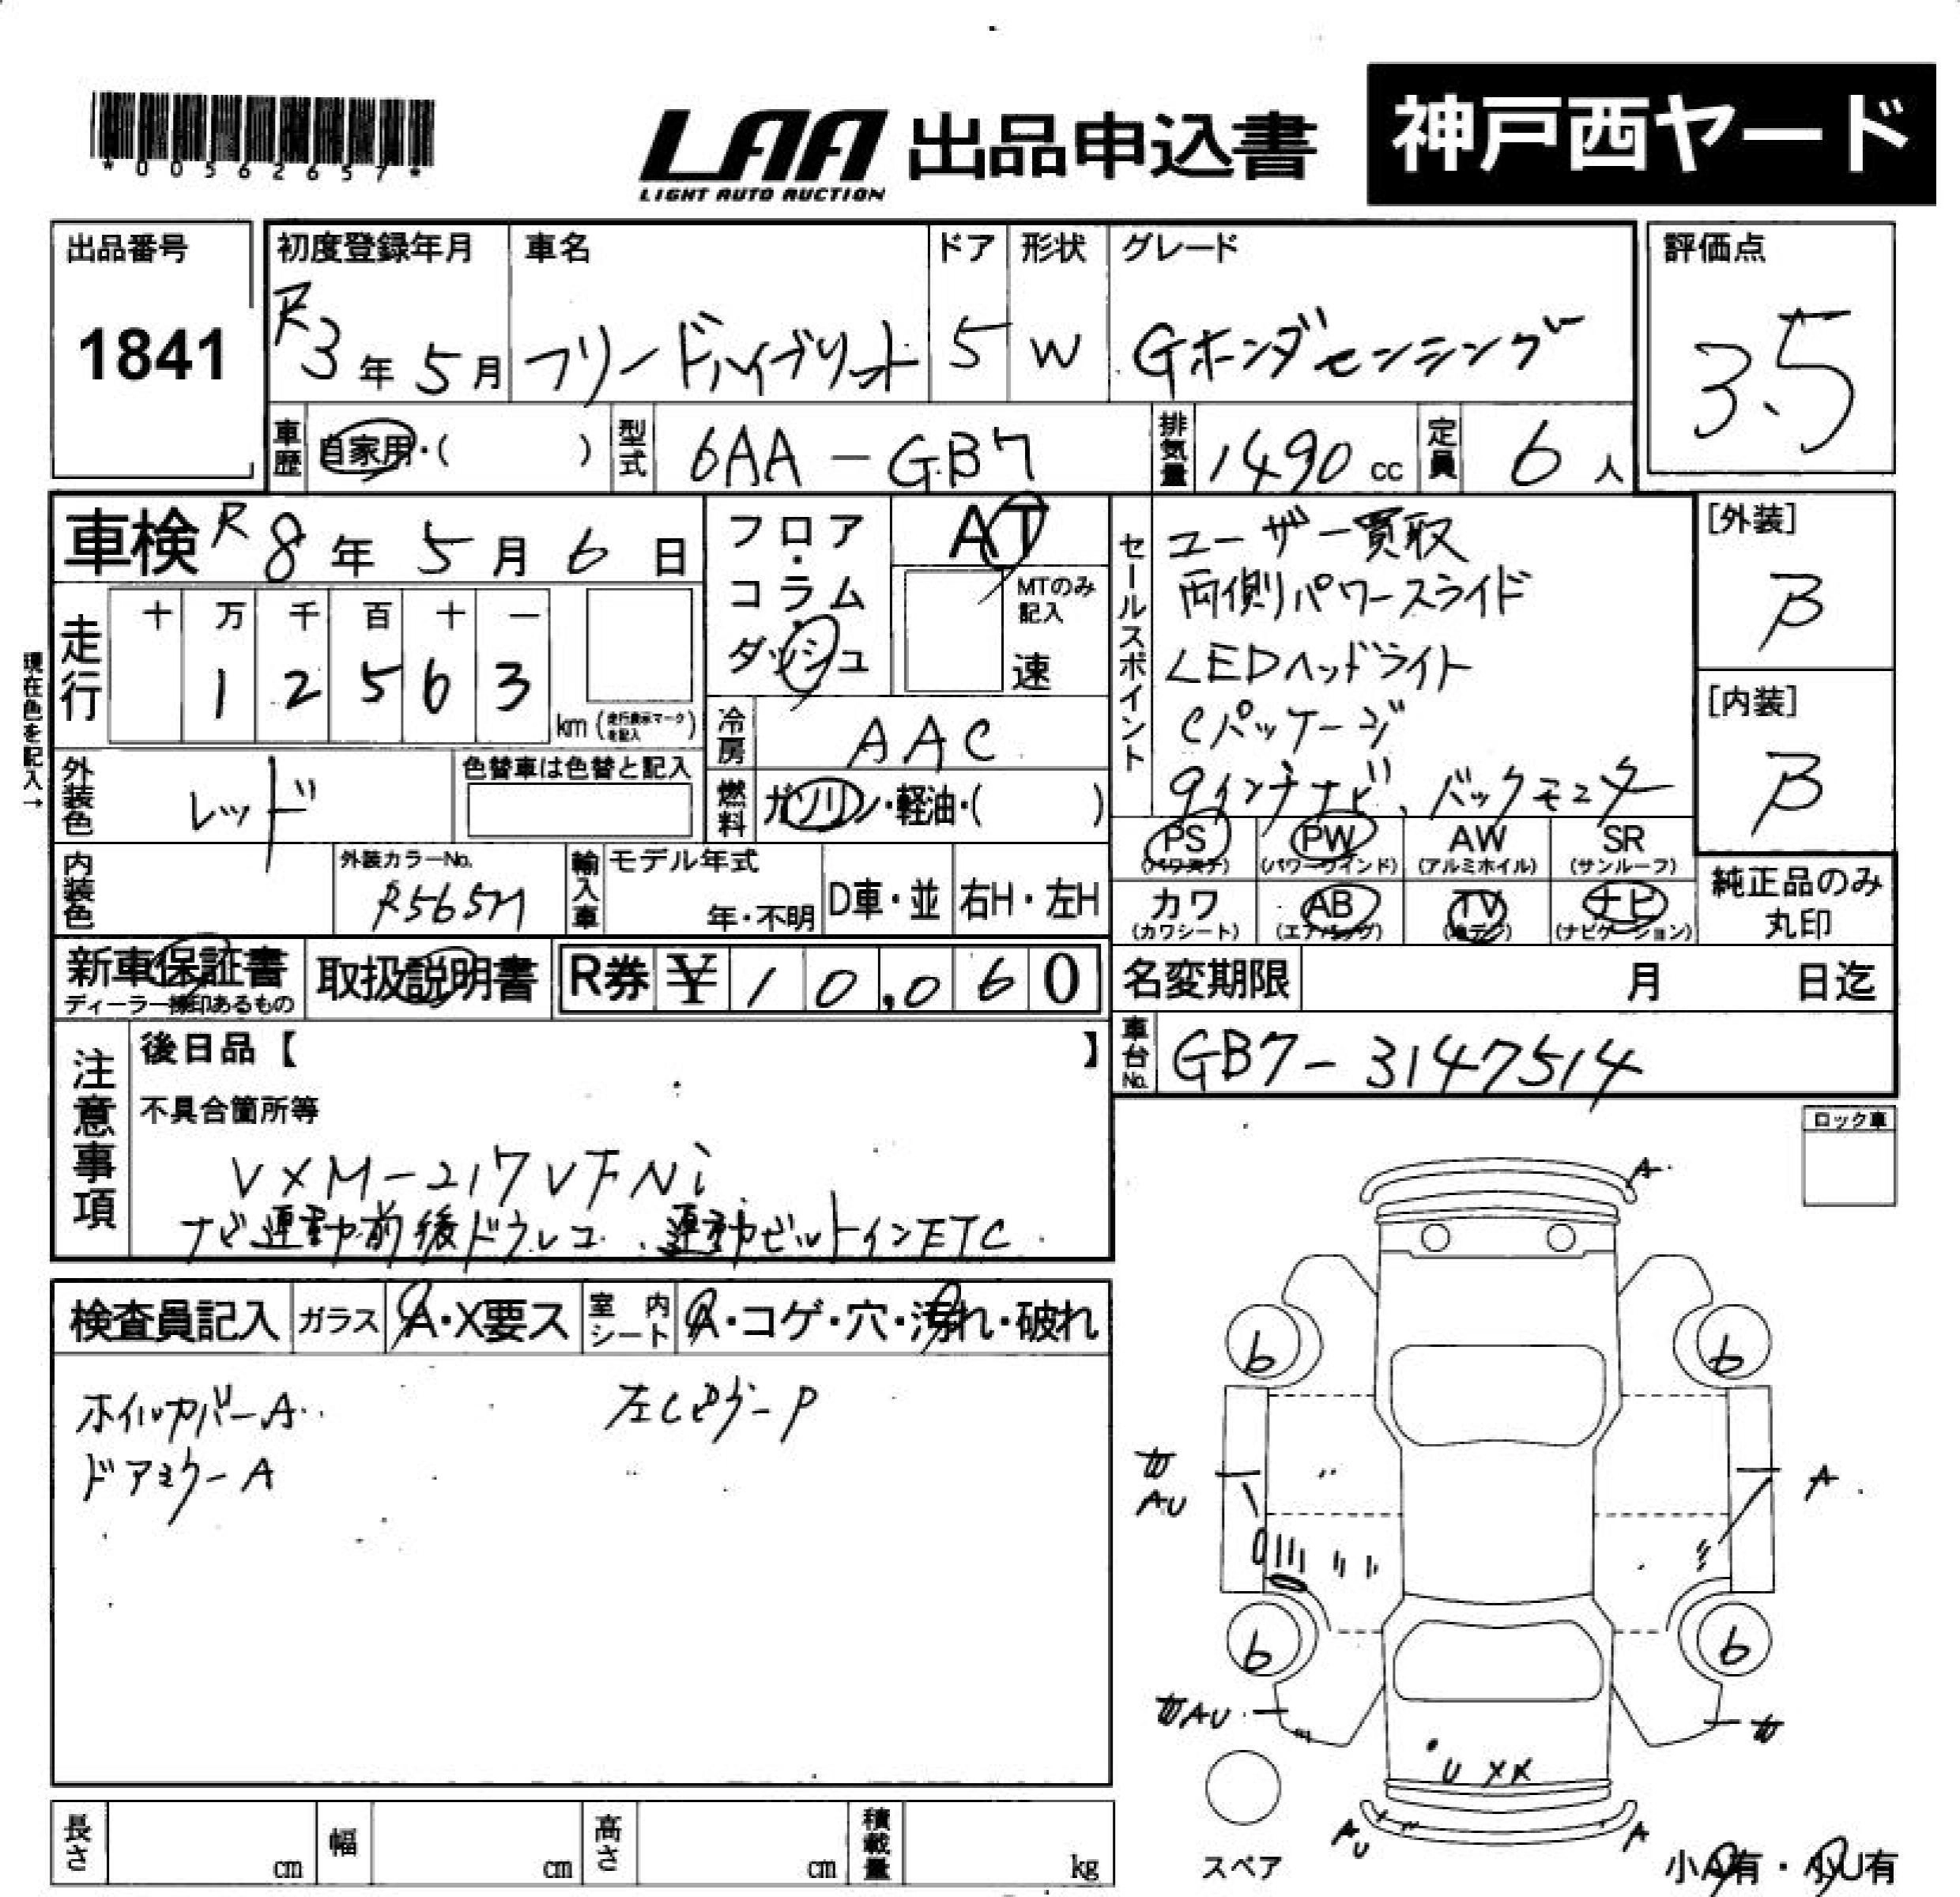 *00562657*
LAA 出品申込書 神戸西ヤード
LIGHT AUTO AUCTION
出品番号
1841
初度登録年月
R3年5月
車名
フリードハイブリット
ドア
5
形状
W
グレード
Gホンダセンシング
評価点
3.5
車歴 自家用・( )
型式 6AA-GB7
排気量 1490 cc
定員 6 人
車検 R8年5月6日
フロア・コラム・ダッシュ
AT
MTのみ記入
速
セールスポイント
ユーザー買取
両側パワースライド
LEDヘッドライト
Cパッケージ
9インチナビ、バックモニター
[外装]
B
[内装]
B
現在色を記入→
走行
十 万 千 百 十 一
1 2 5 6 3
km (走行表示マークを記入)
冷房 AAC
外装色 レッド
色替車は色替と記入
燃料 ガソリン・軽油・( )
PS (パワステ) PW (パワーウインド) AW (アルミホイル) SR (サンルーフ)
カワ (カワシート) AB (エアバッグ) TV (地デジ) ナビ (ナビゲーション)
純正品のみ丸印
内装色
外装カラーNo.
R565M
輸入車 モデル年式 年・不明 D車・並 右H・左H
新車保証書
ディーラー捺印あるもの
取扱説明書
R券 ¥ 10,060
名変期限 月 日迄
車台No. GB7-3147514
注意事項
後日品【 】
不具合箇所等
VXM-217VFNi
ナビ連動前後ドラレコ、連動ビルトインETC
ロック車
検査員記入 ガラス A・X要ス 室内シート A・コゲ・穴・汚れ・破れ
ホイルカバーA 左CピラーP
ドアミラーA
A
b b
AU A
b b
AU
U XX
AU A
スペア
小A有・小U有
長さ cm 幅 cm 高さ cm 積載量 kg